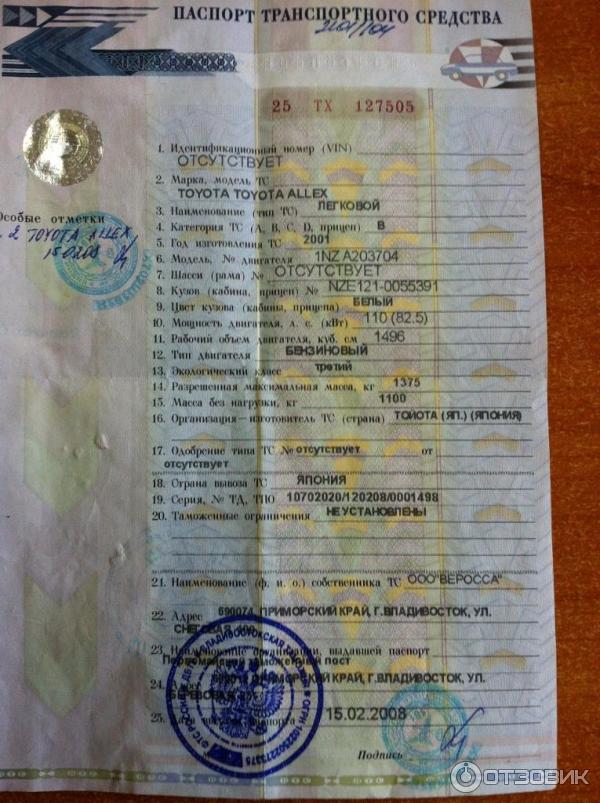 ПАСПОРТ ТРАНСПОРТНОГО СРЕДСТВА
25 ТХ 127505
1. Идентификационный номер (VIN)
ОТСУТСТВУЕТ
2. Марка, модель ТС
TOYOTA TOYOTA ALLEX
3. Наименование (тип ТС) ЛЕГКОВОЙ
Особые отметки
4. Категория ТС (А, В, С, D, прицеп) В
2 TOYOTA ALLEX
5. Год изготовления ТС 2001
6. Модель, № двигателя 1NZ A203704
7. Шасси (рама) № ОТСУТСТВУЕТ
8. Кузов (кабина, прицеп) № NZE121-0055391
9. Цвет кузова (кабины, прицепа) БЕЛЫЙ
10. Мощность двигателя, л. с. (кВт) 110 (82.5)
11. Рабочий объем двигателя, куб. см 1496
12. Тип двигателя БЕНЗИНОВЫЙ
13. Экологический класс третий
14. Разрешенная максимальная масса, кг 1375
15. Масса без нагрузки, кг 1100
16. Организация—изготовитель ТС (страна) ТОЙОТА (ЯП.) (ЯПОНИЯ)
17. Одобрение типа ТС № отсутствует от
отсутствует
18. Страна вывоза ТС ЯПОНИЯ
19. Серия, № ТД, ТПО 10702020/120208/0001498
20. Таможенные ограничения НЕ УСТАНОВЛЕНЫ
21. Наименование (ф. и. о.) собственника ТС ООО"ВЕРОССА"
22. Адрес 690074, ПРИМОРСКИЙ КРАЙ, Г.ВЛАДИВОСТОК, УЛ.
СНЕГОВАЯ
23. Наименование организации, выдавшей паспорт
Первомайский таможенный пост
24. ПРИМОРСКИЙ КРАЙ, Г.ВЛАДИВОСТОК, УЛ.
25. Дата выдачи паспорта 15.02.2008
Подпись
ОТЗОВИК